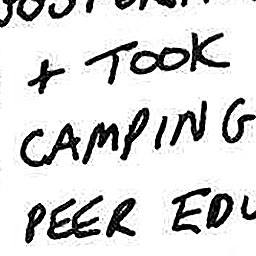 + TOOK
CAMPING
PEER EDU